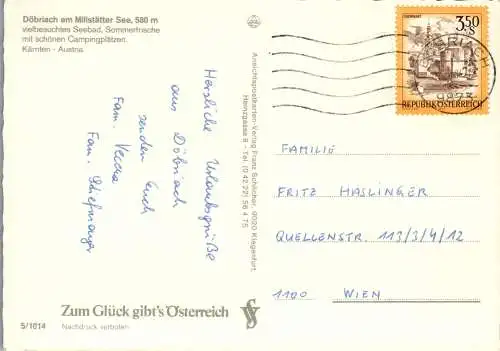 Döbriach am Millstätter See, 580 m
vielbesuchtes Seebad, Sommerfrische
mit schönen Campingplätzen.
Kärnten - Austria
Herzliche Urlaubsgrüße
aus Döbriach
senden Euch
Fam.
Fam.
Zum Glück gibt's Österreich
Nachdruck verboten
5/1614
Ansichtspostkarten-Verlag Franz Schilcher, 9020 Klagenfurt,
Heinzgasse 8 - Tel. (0 42 22) 56 4 75
3.50
S
REPUBLIK ÖSTERREICH
9873
FAMILIE
FRITZ HASLINGER
QUELLENSTR. 113/3/4/12
1100 WIEN